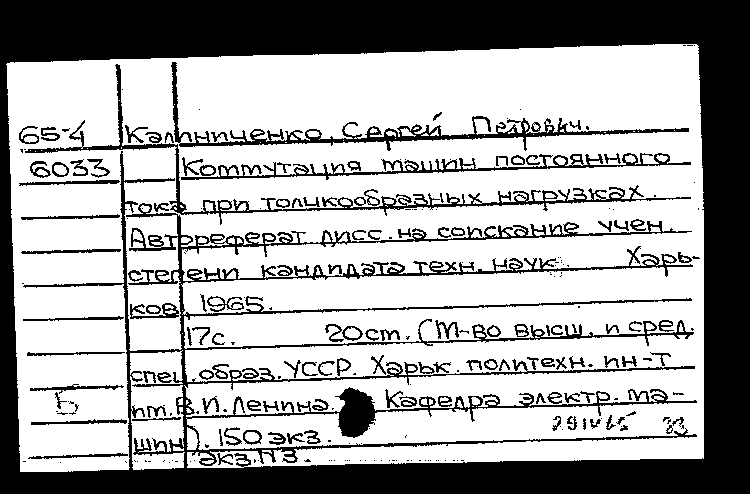 65-4 Калиниченко, Сергей Петрович.
6033 Коммутация машин постоянного
тока при толчкообразных нагрузках.
Автореферат дисс. на соискание учен.
степени кандидата техн. наук. Харь-
ков, 1965.
17с. 20см. (М-во высш. и сред.
спец. образ. УССР. Харьк. политехн. ин-т
Б им. В.И. Ленина. Кафедра электр. ма-
шин). 150 экз.
экз. N 3.